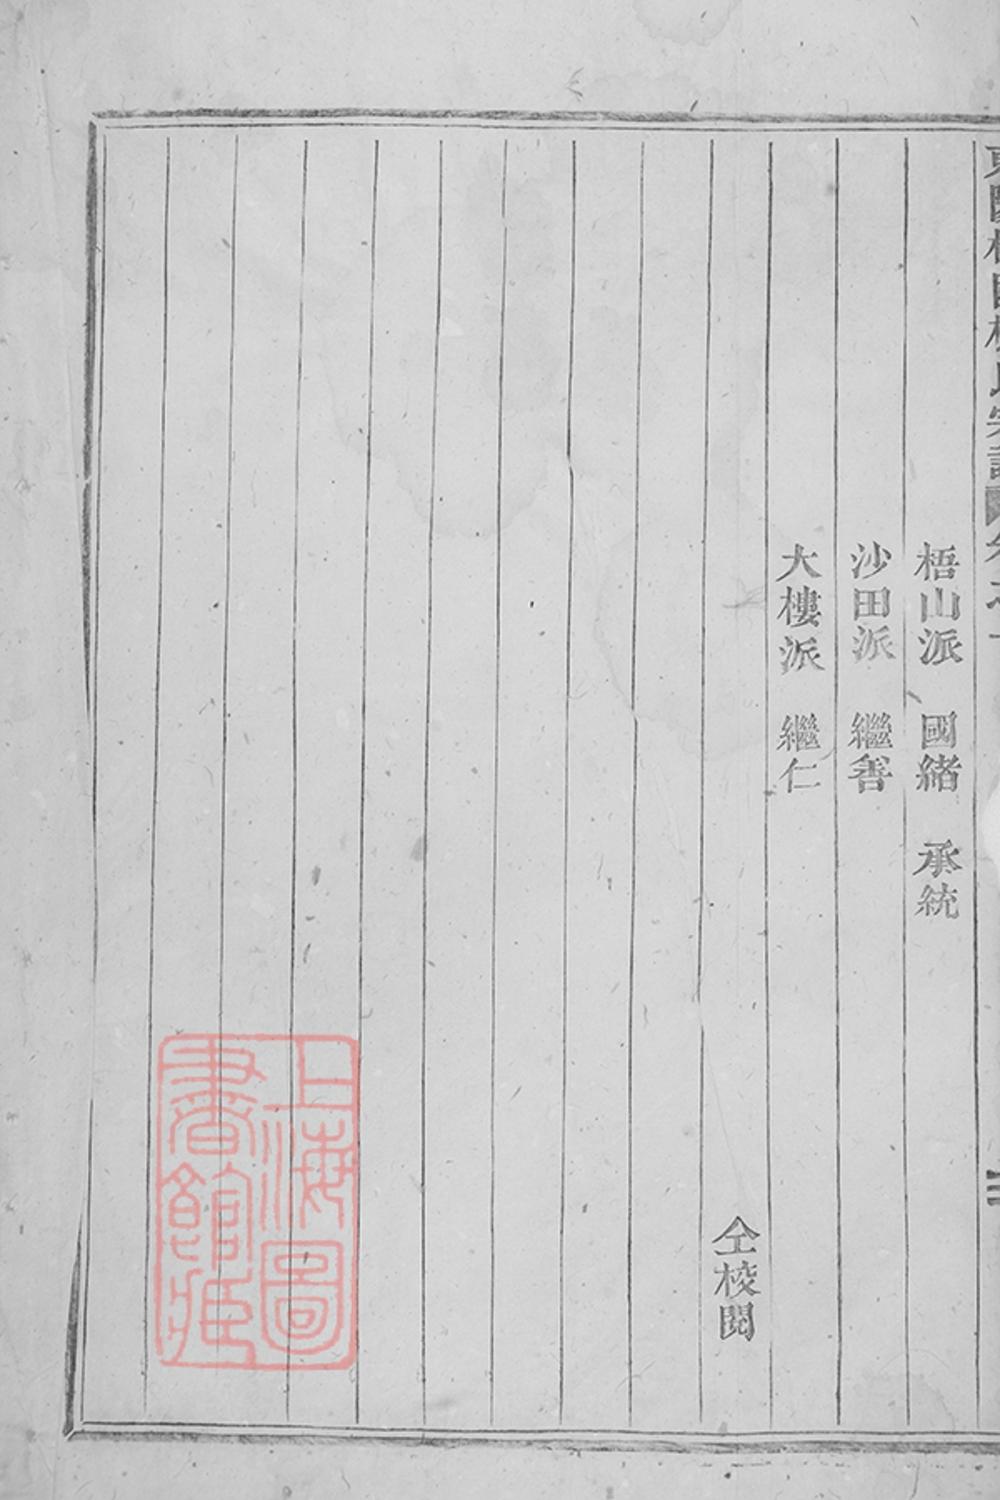 梧山派　國緒　承統
沙田派　繼善
大樓派　繼仁
仝校閱
上海圖
書館藏